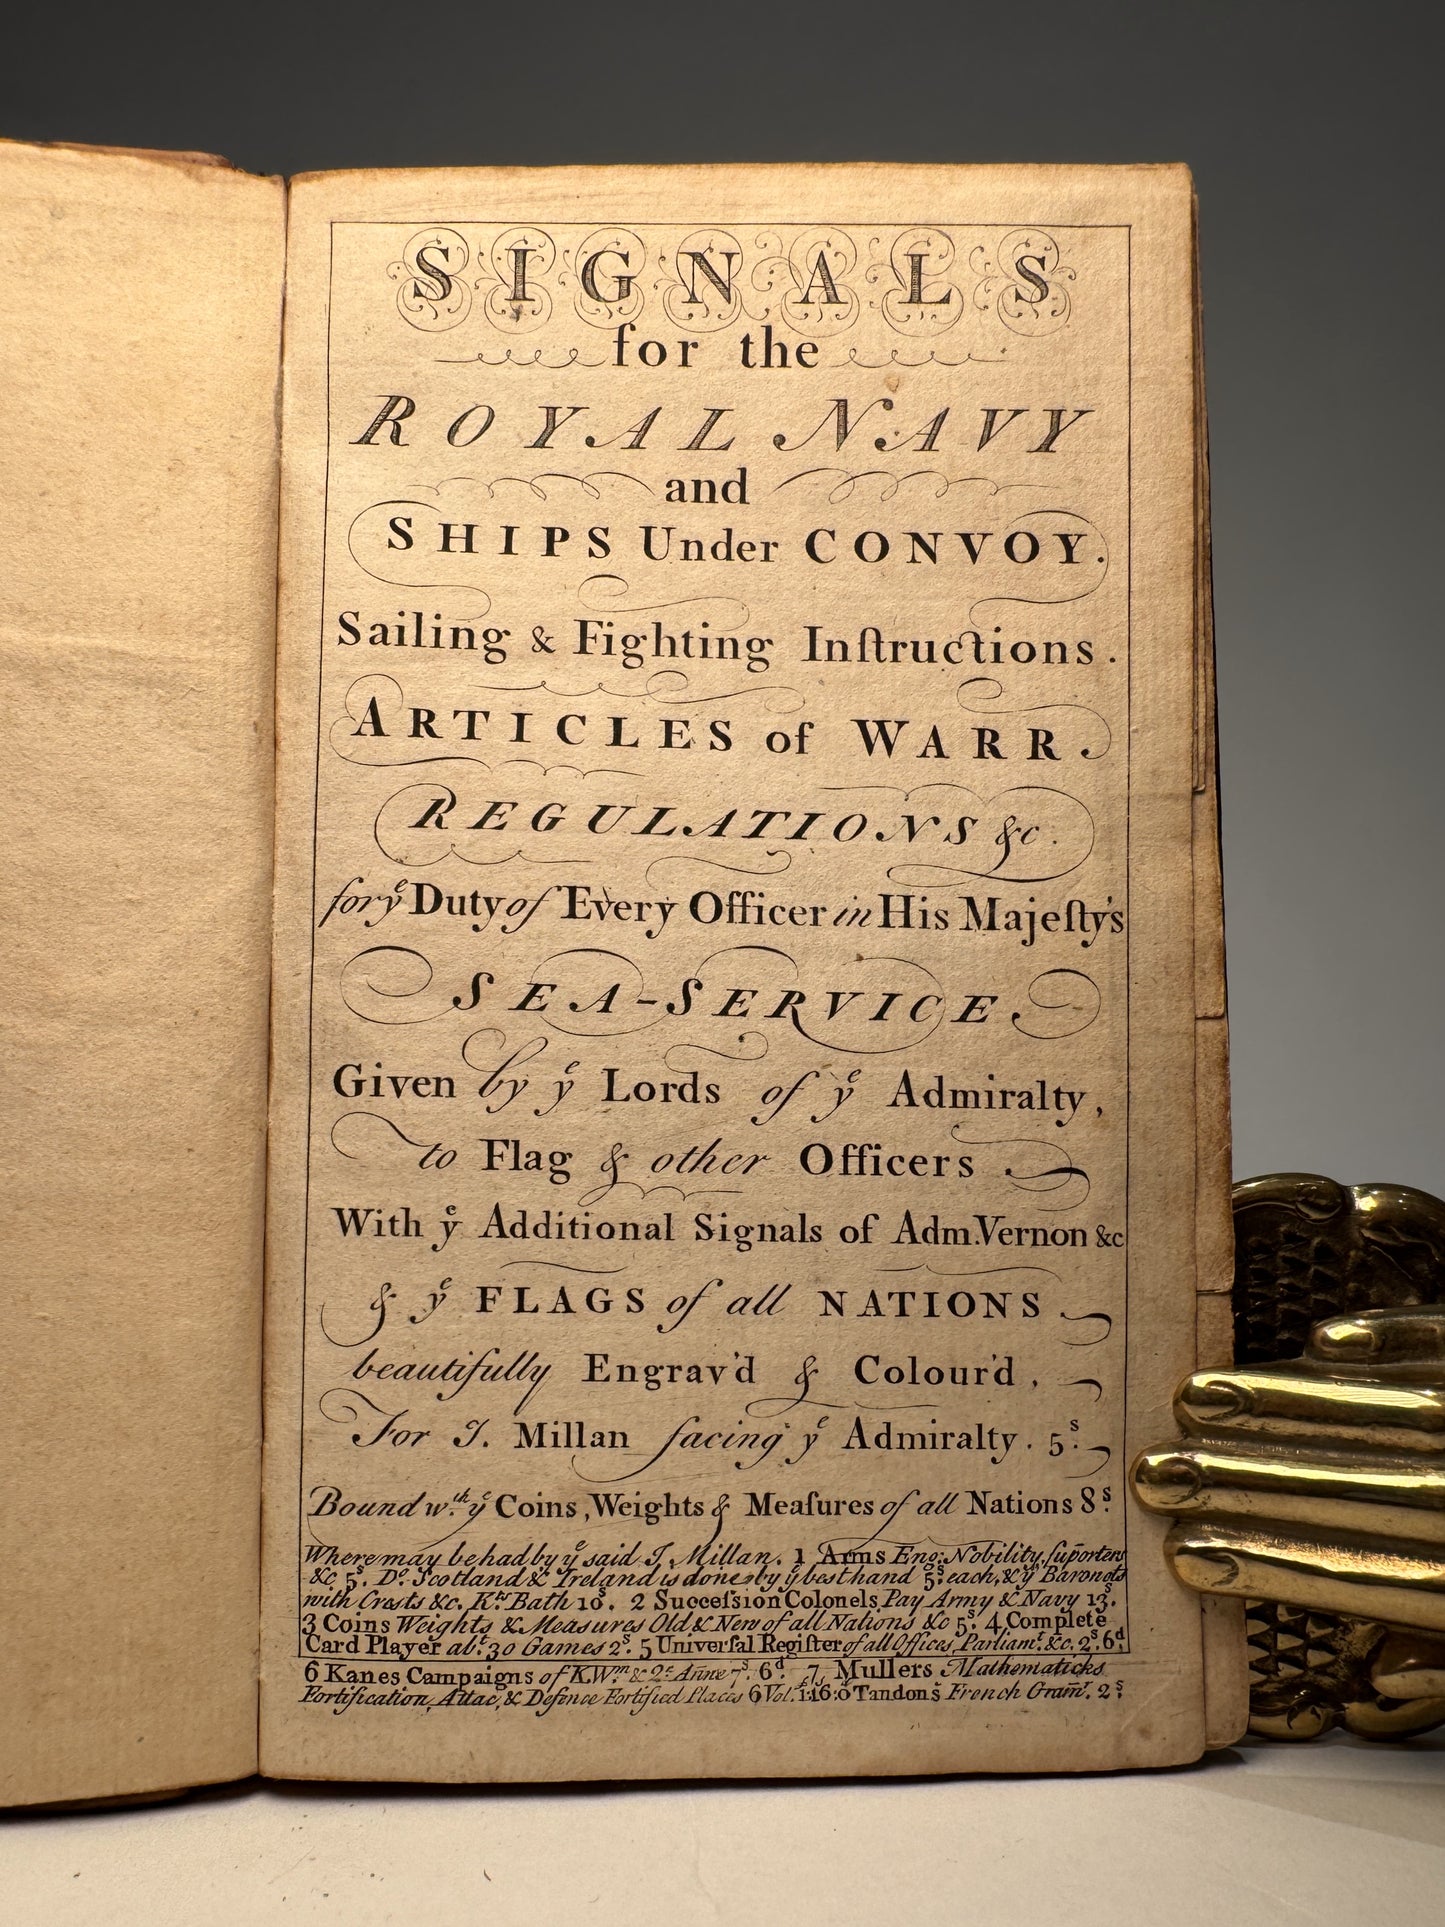 SIGNALS
for the
ROYAL NAVY
and
SHIPS Under CONVOY.
Sailing & Fighting Inſtructions.
ARTICLES of WARR.
REGULATIONS &c.
for yͤ Duty of Every Officer in His Majeſty's
SEA-SERVICE.
Given by yͤ Lords of yͤ Admiralty,
to Flag & other Officers
With yͤ Additional Signals of Adm. Vernon &c
& yͤ FLAGS of all NATIONS
beautifully Engrav'd & Colour'd,
For J. Millan facing yͤ Admiralty. 5ˢ.
Bound wᵗʰ. yͤ Coins, Weights & Meaſures of all Nations 8ˢ.
Where may be had by yͤ said J. Millan. 1 Arms Eng: Nobility, ſup̄orters
&c 5ˢ. Dᵒ. Scotland & Ireland is done by yͤ best hand 5ˢ. each, & yͤ Baronets
with Crests &c. Kᵗˢ Bath 10ˢ. 2 Succeſsion Colonels Pay Army & Navy 13ˢ.
3 Coins Weights & Measures Old & New of all Nations &c 5ˢ. 4 Complete
Card Player abᵗ. 30 Games 2ˢ. 5 Univerſal Regiſter of all Offices, Parliamᵗ. &c. 2ˢ. 6ᵈ.
6 Kanes Campaigns of K. Wᵐ. & 2ᵉ Anne 7ˢ. 6ᵈ. 7 Mullers Mathematicks
Fortification, Attac, & Defence Fortified Places 6 Vol. 1:16:0 Tandons French Gram̄ʳ. 2ˢ.